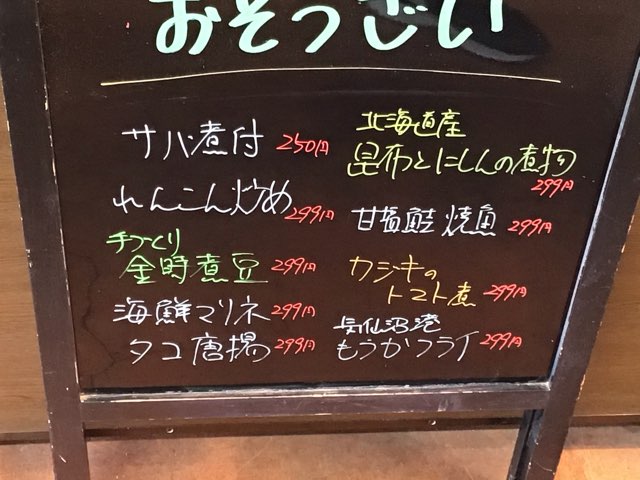 おそうざい
サバ煮付 250円
れんこん炒め 299円
手づくり
金時煮豆 299円
海鮮マリネ 299円
タコ唐揚 299円
北海道産
昆布とにしんの煮物
299円
甘塩鮭 焼魚 299円
カジキの
トマト煮 299円
気仙沼港
もうかフライ 299円